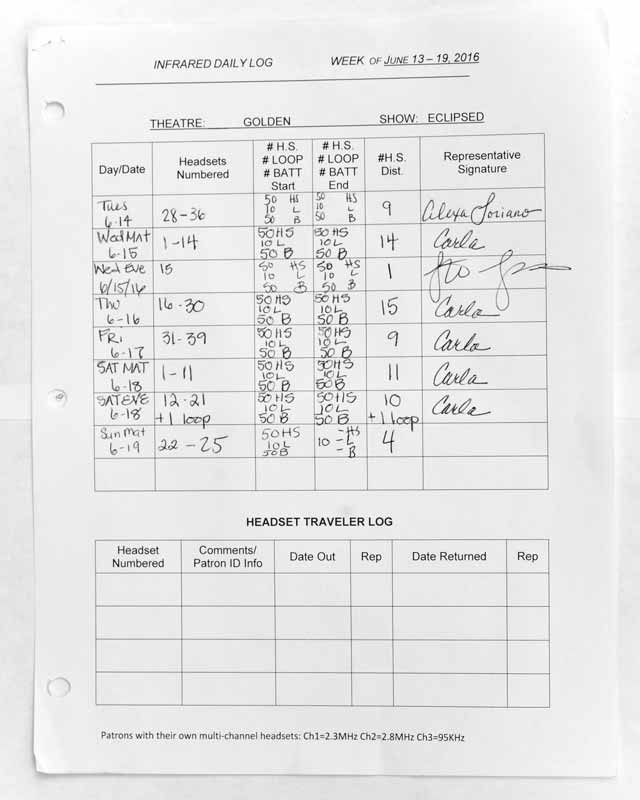 INFRARED DAILY LOG WEEK OF JUNE 13 – 19, 2016
THEATRE: GOLDEN SHOW: ECLIPSED
Day/Date Headsets Numbered # H.S. # LOOP # BATT Start # H.S. # LOOP # BATT End #H.S. Dist. Representative Signature
Tues 6-14 28-36 50 HS 10 L 50 B 50 HS 10 L 50 B 9 Alexa Soriano
Wed Mat 6-15 1-14 50 HS 10 L 50 B 50 HS 10 L 50 B 14 Carla
Wed Eve 6/15/16 15 50 HS 10 L 50 B 50 HS 10 L 50 B 1
Thu 6-16 16-30 50 HS 10 L 50 B 50 HS 10 L 50 B 15 Carla
FRI 6-17 31-39 50 HS 10 L 50 B 50 HS 10 L 50 B 9 Carla
SAT MAT 6-18 1-11 50 HS 10 L 50 B 50 HS 10 L 50 B 11 Carla
SAT EVE 6-18 12-21 +1 loop 50 HS 10 L 50 B 50 HS 10 L 50 B 10 +1 loop Carla
Sun Mat 6-19 22-25 50 HS 10 L 50 B - HS 10 - L - B 4
HEADSET TRAVELER LOG
Headset Numbered Comments/ Patron ID Info Date Out Rep Date Returned Rep
Patrons with their own multi-channel headsets: Ch1=2.3MHz Ch2=2.8MHz Ch3=95KHz